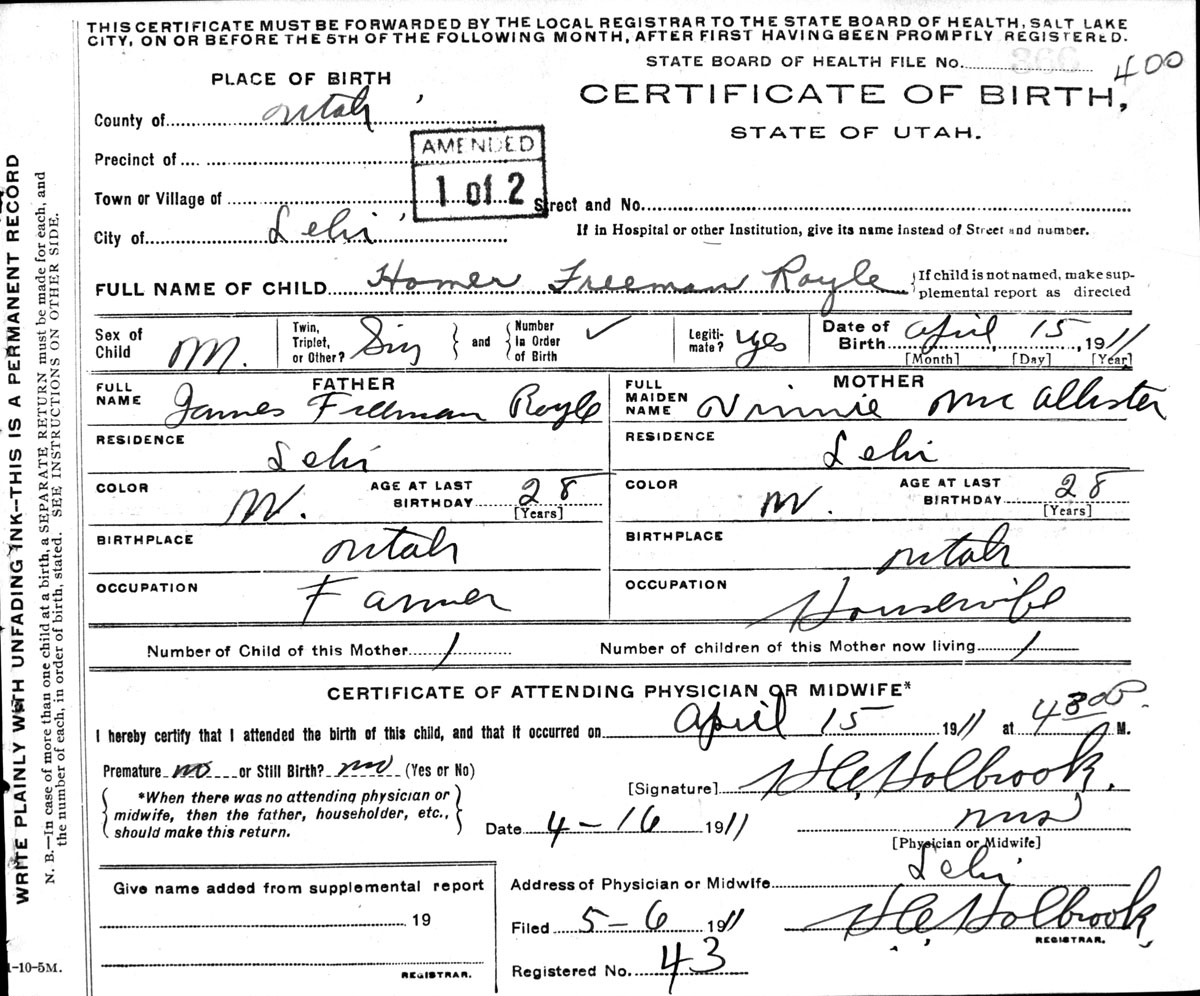 THIS CERTIFICATE MUST BE FORWARDED BY THE LOCAL REGISTRAR TO THE STATE BOARD OF HEALTH, SALT LAKE
CITY, ON OR BEFORE THE 5TH OF THE FOLLOWING MONTH, AFTER FIRST HAVING BEEN PROMPTLY REGISTERED.
STATE BOARD OF HEALTH FILE No. 366 400
PLACE OF BIRTH
CERTIFICATE OF BIRTH,
STATE OF UTAH.
County of Utah
AMENDED
1 of 2
Precinct of
Town or Village of
Street and No.
City of Lehi
If in Hospital or other Institution, give its name instead of Street and number.
FULL NAME OF CHILD Homer Freeman Royle {If child is not named, make sup-
plemental report as directed
Sex of Child M. Twin, Triplet, or Other? Sing and Number In Order of Birth ✓ Legiti-mate? yes Date of Birth April 15, 1911
[Month] [Day] [Year]
FATHER
FULL NAME James Freeman Royle
MOTHER
FULL MAIDEN NAME Vinnie McAllister
RESIDENCE Lehi
RESIDENCE Lehi
COLOR W. AGE AT LAST BIRTHDAY 28 [Years]
COLOR W. AGE AT LAST BIRTHDAY 28 [Years]
BIRTHPLACE Utah
BIRTHPLACE Utah
OCCUPATION Farmer
OCCUPATION Housewife
Number of Child of this Mother 1 Number of children of this Mother now living 1
CERTIFICATE OF ATTENDING PHYSICIAN OR MIDWIFE*
I hereby certify that I attended the birth of this child, and that it occurred on April 15 1911 at 4 30 P. M.
Premature no or Still Birth? no (Yes or No)
[Signature] H.C. Holbrook.
*When there was no attending physician or
midwife, then the father, householder, etc.,
should make this return.
Date 4-16 1911
[Physician or Midwife]
Give name added from supplemental report
19
REGISTRAR.
Address of Physician or Midwife Lehi
Filed 5-6 1911 H C Holbrook
REGISTRAR.
Registered No. 43
WRITE PLAINLY WITH UNFADING INK—THIS IS A PERMANENT RECORD
N. B.—In case of more than one child at a birth, a SEPARATE RETURN must be made for each, and
the number of each, in order of birth, stated. SEE INSTRUCTIONS ON OTHER SIDE.
1-10-5M.